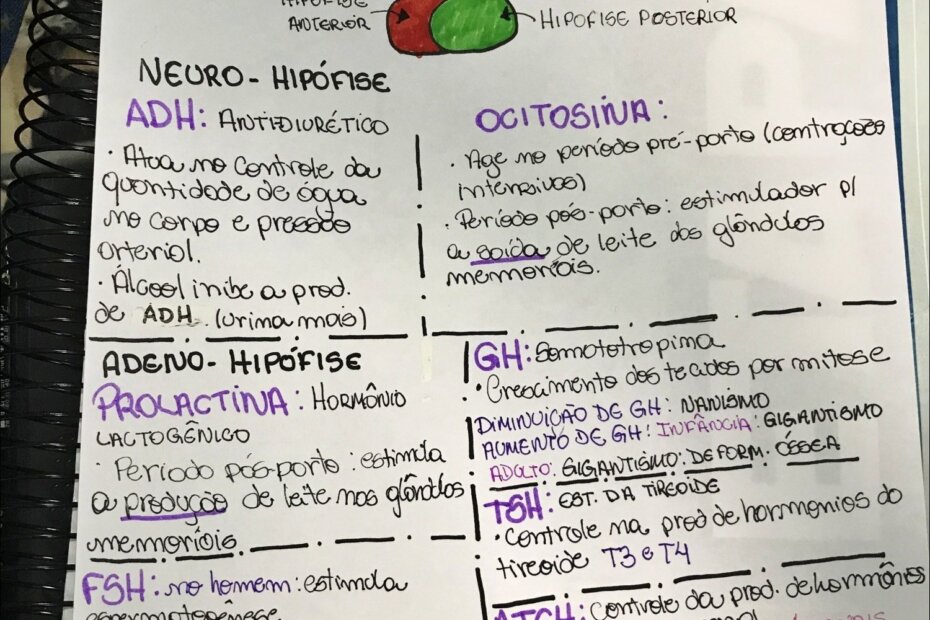 HIPÓFISE
ANTERIOR
HIPÓFISE POSTERIOR
NEURO - HIPÓFISE
ADH: ANTIDIURÉTICO
· Atua no controle da
quantidade de água
no corpo e pressão
arterial.
· Álcool inibe a prod.
de ADH. (urina mais)
OCITOSINA:
· Age no período pré-parto (contrações
intensivas)
· Período pós-parto: estimulador p/
a saída de leite das glândulas
memoriais.
ADENO - HIPÓFISE
PROLACTINA: HORMÔNIO
LACTOGÊNICO
· Período pós-parto: estimula
a produção de leite nas glândulas
memoriais.
FSH: no homem: estimula
espermatogênese
GH: Somatotropina
· Crescimento dos tecidos por mitose
DIMINUIÇÃO DE GH: NANISMO
AUMENTO DE GH: INFÂNCIA: GIGANTISMO
ADULTO: GIGANTISMO: DEFORM. ÓSSEA
TSH: EST. DA TIREOIDE
· Controle na prod de hormonios da
tireoide T3 e T4
ATCH: Controle da prod. de hormônios